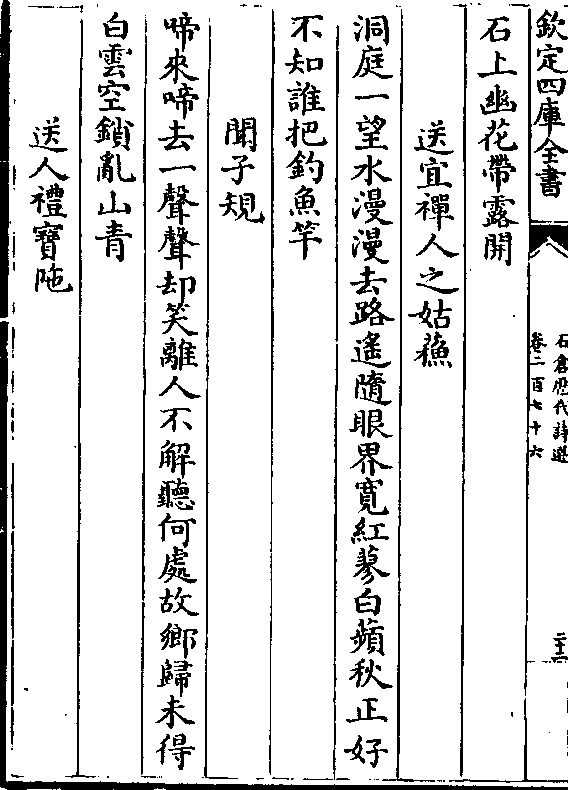 欽定四庫全書
石倉歷代詩選
卷二百七十六
石上幽花帶露開
送宜禪人之姑蘓
洞庭一望水漫漫去路遙隨眼界寬紅蓼白蘋秋正好
不知誰把釣魚竿
聞子規
啼來啼去一聲聲却笑離人不解聽何處故鄉歸未得
白雲空鎖亂山青
送人禮寶陁